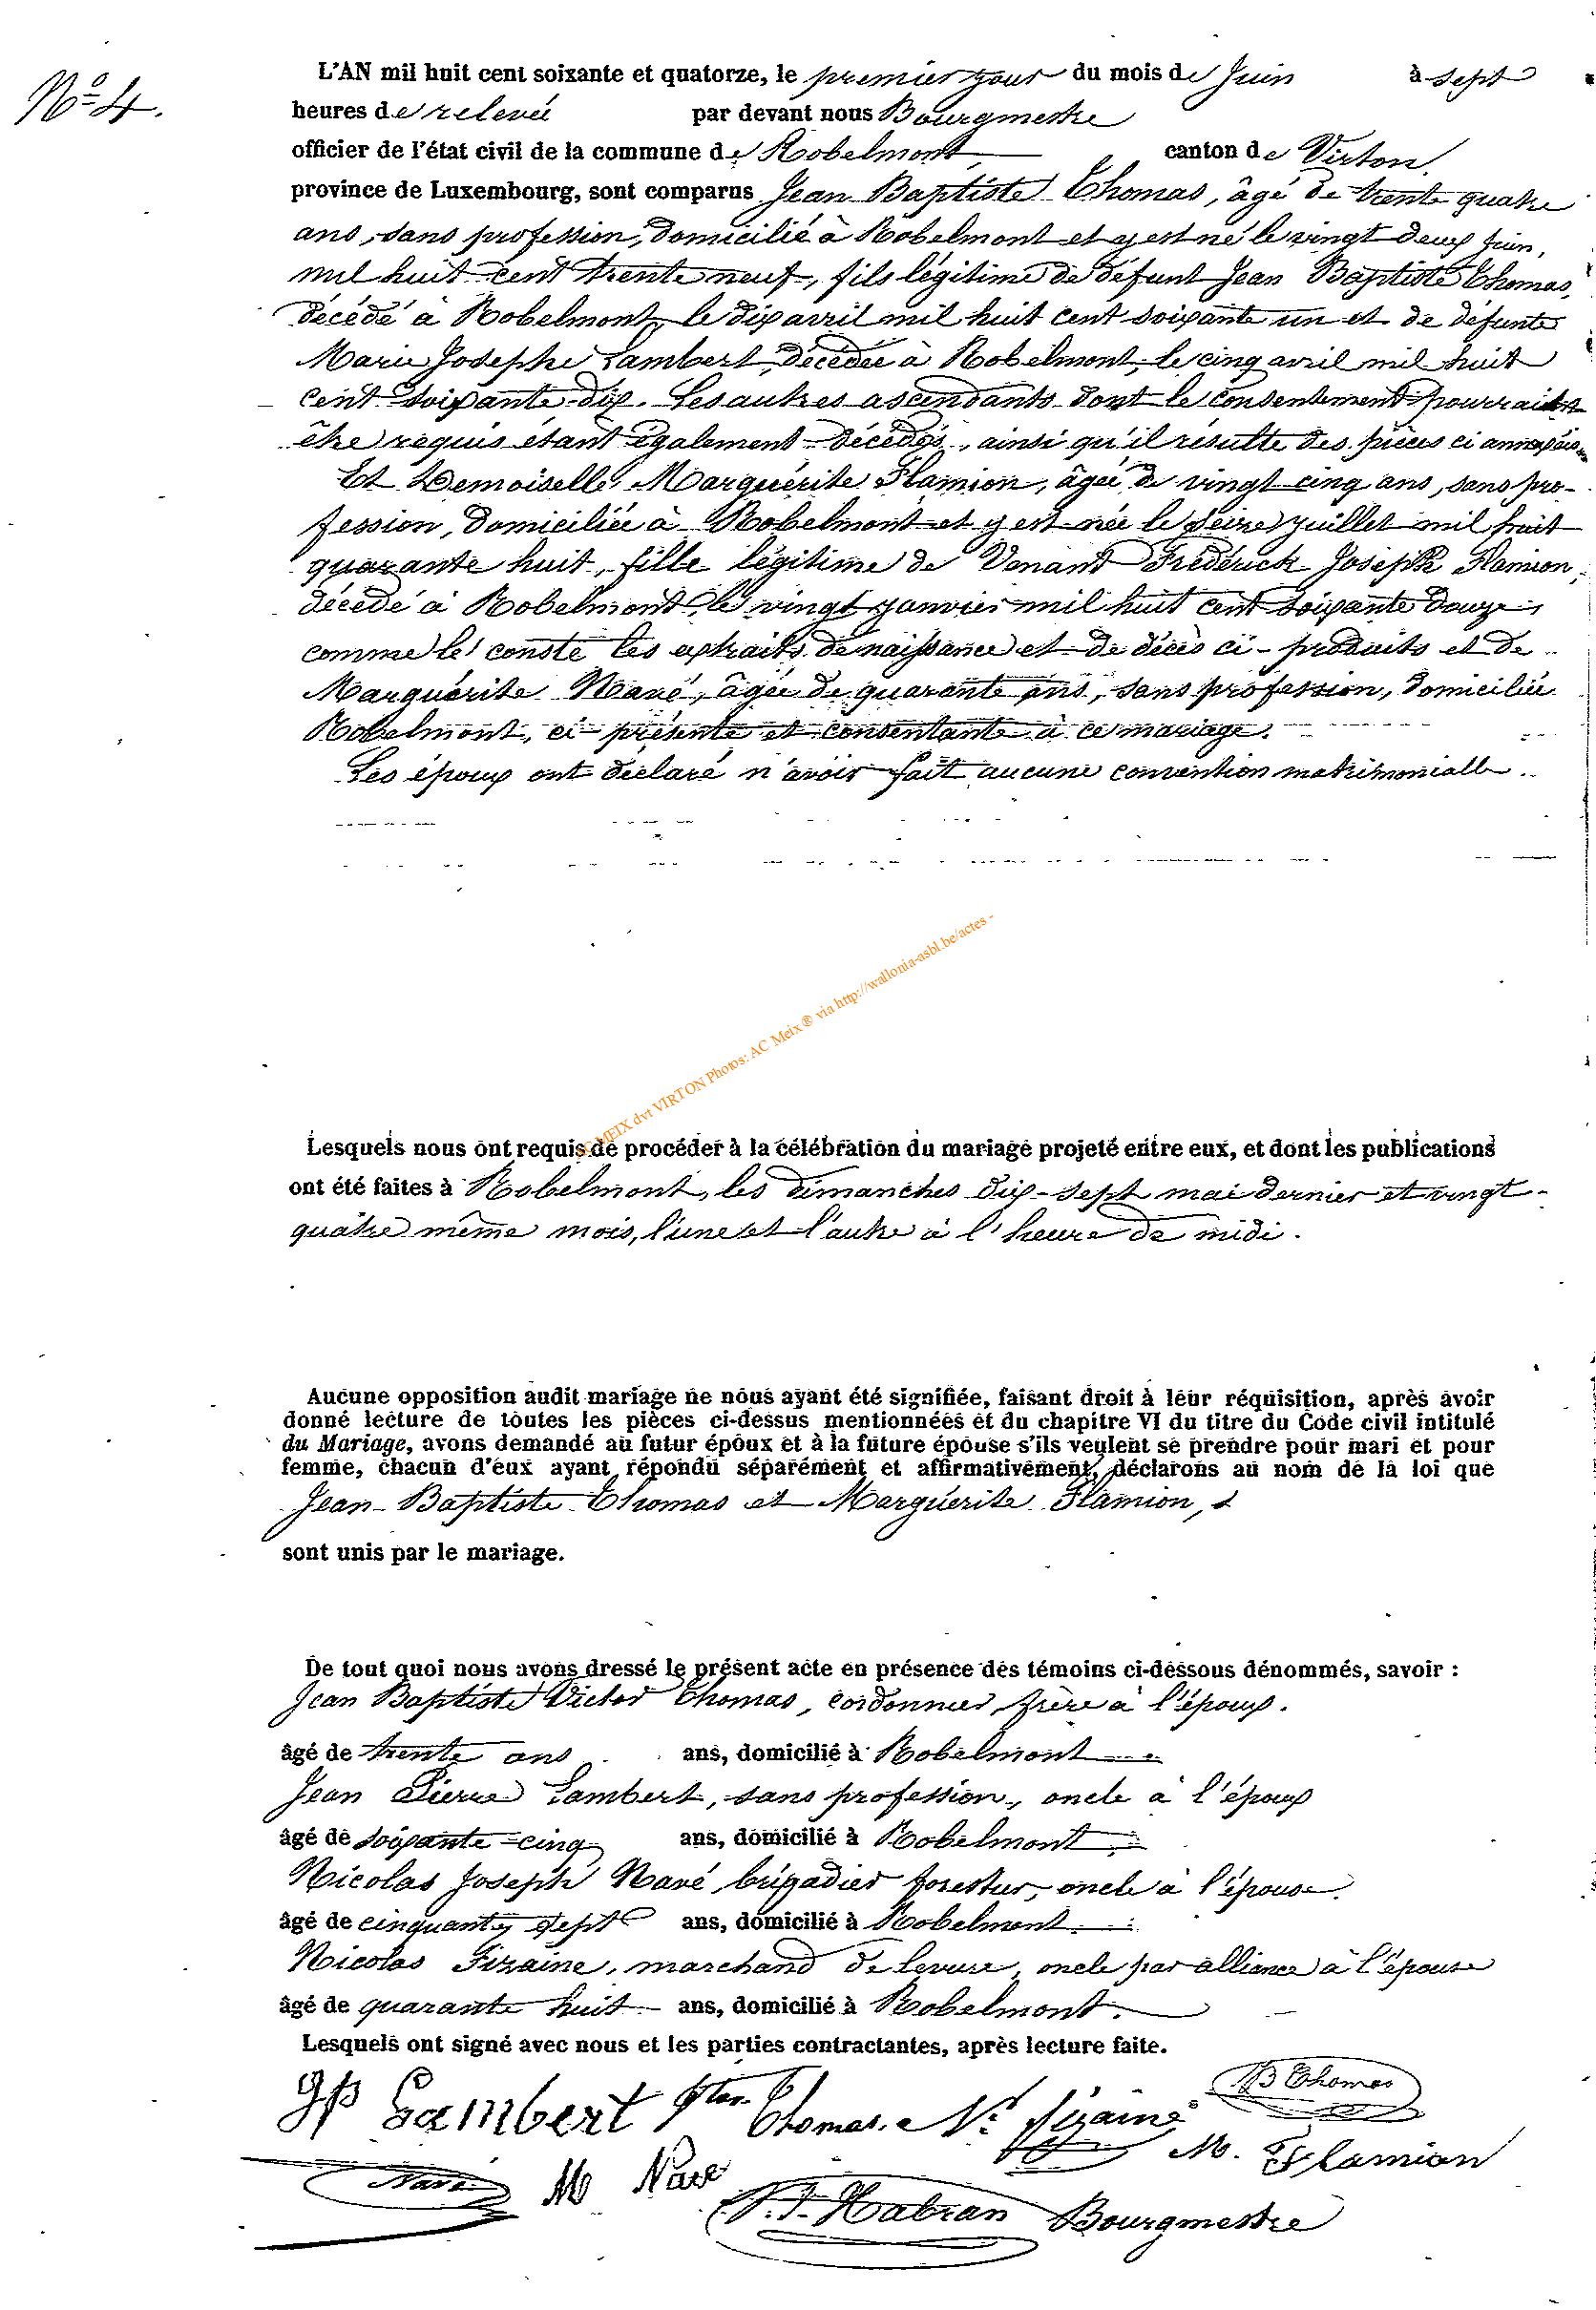 N° 4.
L'AN mil huit cent soixante et quatorze, le premier jour du mois de Juin à sept
heures de relevée par devant nous Bourgmestre
officier de l'état civil de la commune de Robelmont canton de Virton.
province de Luxembourg, sont comparus Jean Baptiste Thomas, âgé de trente quatre
ans, sans profession, domicilié à Robelmont et y est né le vingt deux juin,
mil huit cent trente neuf, fils légitime de défunt Jean Baptiste Thomas,
décédé à Robelmont, le dix avril mil huit cent soixante un et de défunte
Marie Josephe Lambert, décédée à Robelmont, le cinq avril mil huit
cent soixante dix. Les autres ascendants dont le consentement pourraient
être requis étant également décédés, ainsi qu'il résulte des pièces ci annexées
Et Demoiselle Marguérite Flamion, âgée de vingt cinq ans, sans pro-
fession, domiciliée à Robelmont et y est née le seize juillet mil huit
quarante huit, fille légitime de Venant Fréderick Joseph Flamion,
décédé à Robelmont, le vingt janvier mil huit cent soixante douze,
comme le conste les extraits de naissance et de décès ci-produits et de
Marguérite Navé, âgée de quarante ans, sans profession, domiciliée
Robelmont, ci-présente et consentante à ce mariage.
Les époux ont déclaré n'avoir fait aucune convention matrimoniale.
AC MEIX dvt VIRTON Photos: AC Meix ® via http://wallonia-asbl.be/actes -
Lesquels nous ont requis de procéder à la célébration du mariage projeté entre eux, et dont les publications
ont été faites à Robelmont, les dimanches dix-sept mai dernier et vingt-
quatre même mois, l'une et l'autre à l'heure de midi.
Aucune opposition audit mariage ne nous ayant été signifiée, faisant droit à leur réquisition, après avoir
donné lecture de toutes les pièces ci-dessus mentionnées et du chapitre VI du titre du Code civil intitulé
du Mariage, avons demandé au futur époux et à la future épouse s'ils veulent se prendre pour mari et pour
femme, chacun d'eux ayant répondu séparément et affirmativement, déclarons au nom de la loi que
Jean-Baptiste Thomas et Marguérite Flamion,
sont unis par le mariage.
De tout quoi nous avons dressé le présent acte en présence des témoins ci-dessous dénommés, savoir :
Jean Baptiste Victor Thomas, cordonnier, frère à l'époux.
âgé de trente ans ans, domicilié à Robelmont
Jean Pierre Lambert, sans profession, oncle à l'époux
âgé de soixante-cinq ans, domicilié à Robelmont
Nicolas Joseph Navé brigadier forestier, oncle à l'épouse.
âgé de cinquante sept ans, domicilié à Robelmont
Nicolas Fizaine, marchand de levure, oncle par alliance à l'épouse
âgé de quarante huit ans, domicilié à Robelmont.
Lesquels ont signé avec nous et les parties contractantes, après lecture faite.
JP Lambert Thomas. Fizaine JB Thomas
M. Flamion
Navé M Navé Habran Bourgmestre